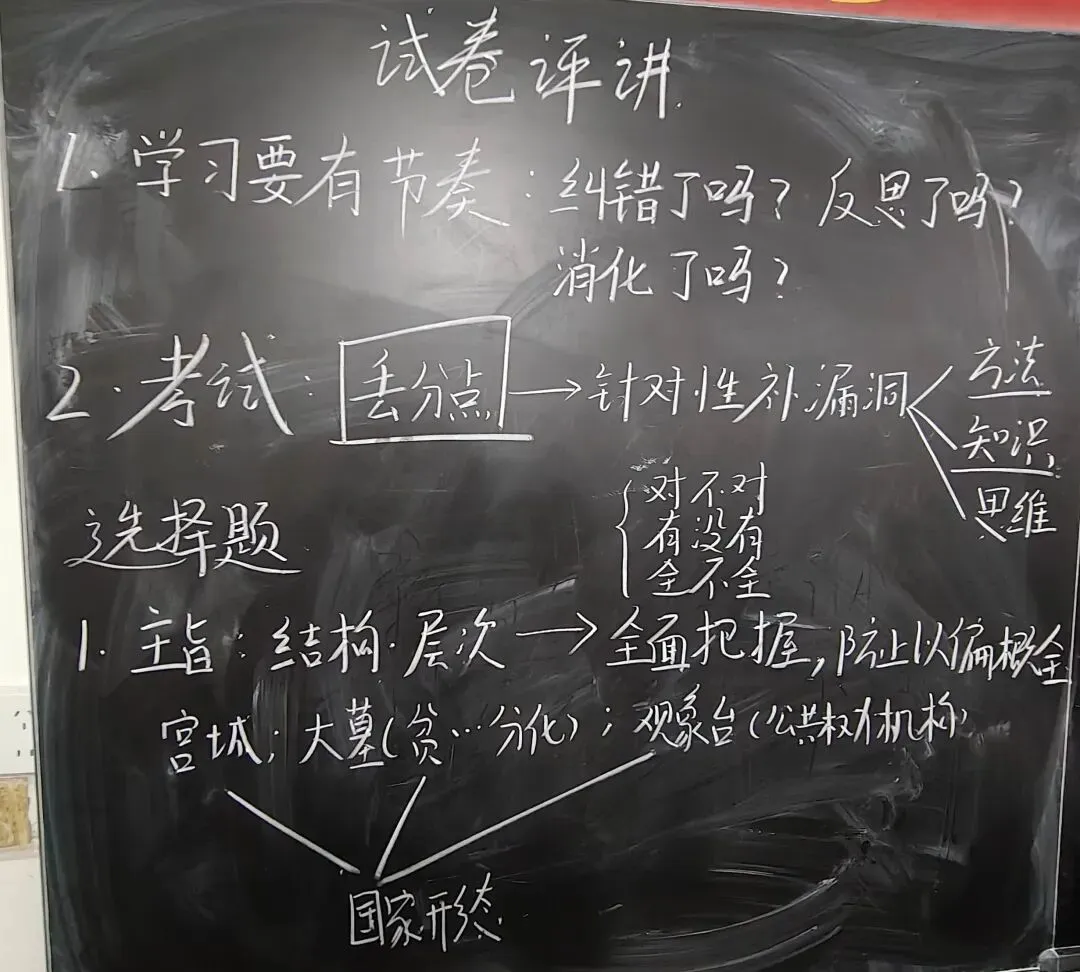 试卷评讲
1. 学习要有节奏：纠错了吗？反思了吗？
消化了吗？
2. 考试：丢分点→针对性补漏洞
方法
知识
思维
选择题
对不对
有没有
全不全
1. 主旨：结构·层次→全面把握，防止以偏概全
宫城；大墓（贫…分化）；观象台（公共权力机构）
国家形态